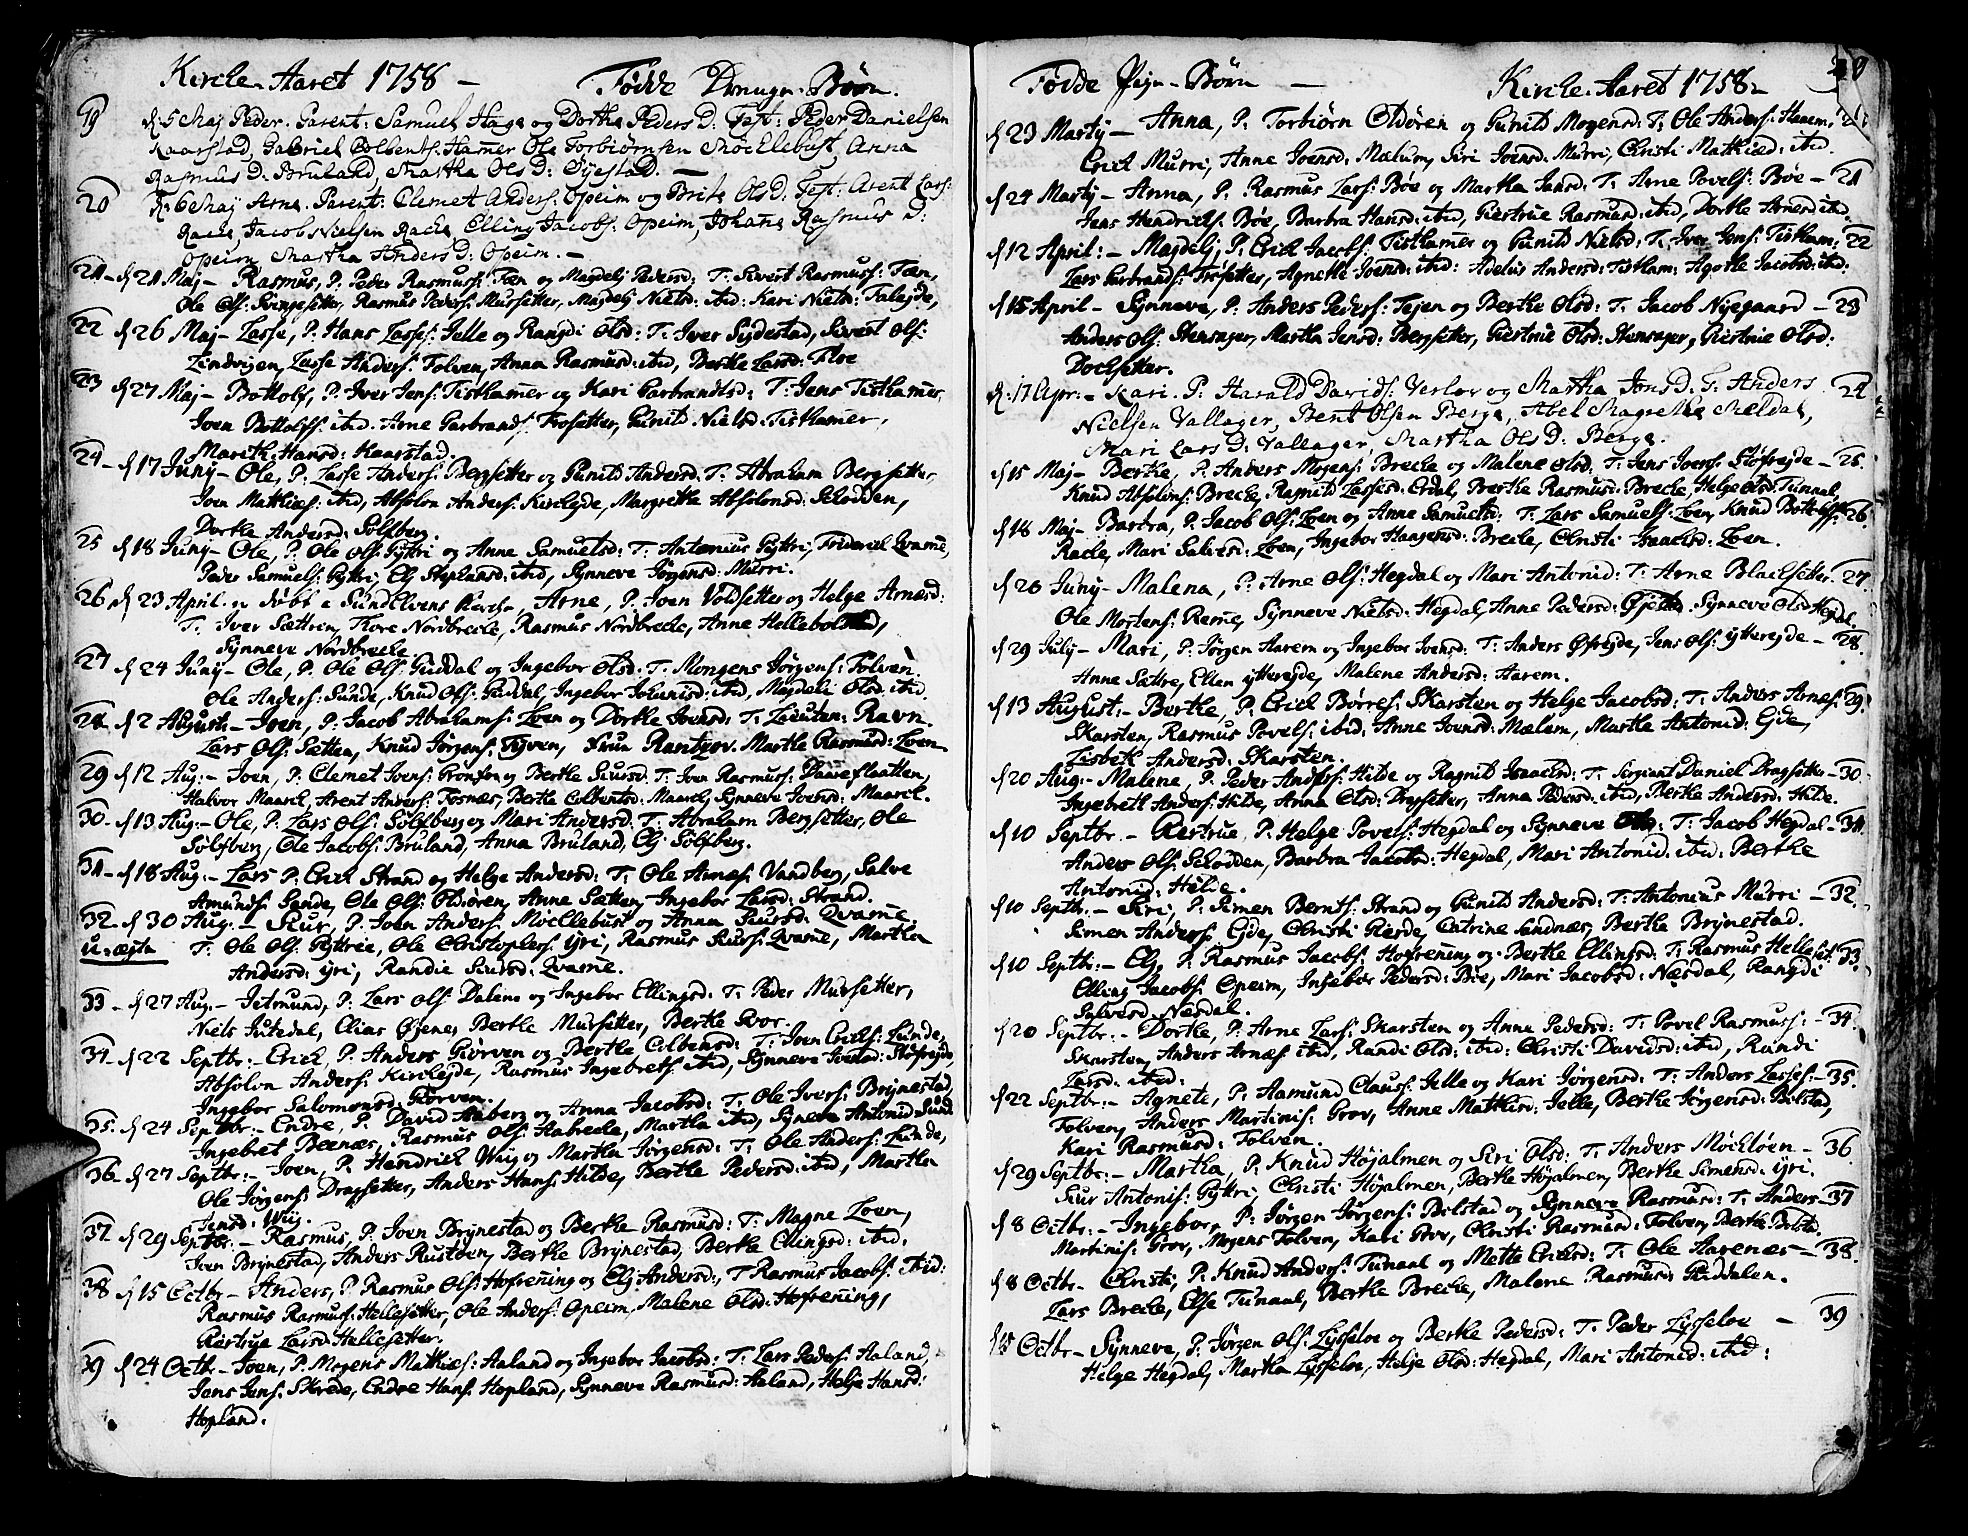 Kirche-Aaret 1758 – Fødde Drenge-Børn.
19 d. 5 Maj Peder. Parent: Samuel Hage og Dorthe Peders D: Test: Peder Danielsen
Kaarstad, Gabriel Colbents: Hamer Ole Torbiørnsen Mocklebust, Anna
Rasmus D. Bruland, Martha Ols D: Øyestad. –
20 d. 6 Maj Arne. Parent: Clemet Anders: Opeim og Brite Ols D. Test. Arent Lars:
Rache, Jacob Nielsen Rache Elling Jacobs: Opeim, Johane Rasmus D:
Opeim Martha Anders D: Opeim. –
21 – d 21 Maj – Rasmus, P. Peder Rasmus: Tæn og Magdeli Peders d: T: Sivert Rasmus: Tæn,
Ole Ols: Svingesetter, Rasmus Peders: Mursetter, Magdelj Nielsd: ibid: Kari Nielsd: Falejde,
22 d 26 Maj – Lasse, P: Hans Lasses: Jelle og Rangdi Olsd: T: Iver Sygdestad, Sivert Ols:
Lindvigen, Lasse Anders: Folven, Anna Rasmusd: ibid, Berthe Larsd: Flore
23 d 27 Maj – Bottolf, P. Iver Jens: Tisthamer og Kari Garbrandtsd: T: Jens Tisthamer
Joen Bottolfs: ibid. Arne Garbrands: Frosetter, Gunild Nielsd: Tisthamer,
Marith Hansd: Kaarstad.
24 – d 17 Juny – Ole, P. Lasse Anders: Bergsetter og Gunild Andersd. T: Abraham Bergsetter,
Joen Mathiæs: ibid, Absolon Anders: Kirchejde, Margrethe Absolonsd: Schodden,
Dorthe Andersd: Sølfberg.
25 d 18 Juny – Ole, P. Ole Ols: Gyttri og Anne Samuelsd: T: Antonius Gyttri, Friderich Qvame,
Peder Samuels: Gyttri, Elj Stephansd: ibid, Synneve Jørgensd: Murri.
26 d 23 April er døbt i SundElvens Kirche, Arne, P. Joen Voldsetter og Helge Arnesd:
T: Iver Sættren, Tore Nordbreche, Rasmus Nordbreche, Anne Hellebolstad,
Synneve Nordbreche.
27 d 24 Juny – Ole, P. Ole Ols: Guddal og Ingebor Olsd: T. Mongens Jørgens: Folven
Ole Anders: Sunde, Knud Ols: Guddal, Ingebor Johanisd: ibid, Magdeli Olsd: ibid.
28 d 2 August: – Joen, P. Jacob Abrahams: Loen og Dorthe Joensd: T: Lieuten: Ravn.
Lars Ols: Sætten, Knud Jørgens: Tyven, Frun Rantzov. Marthe Rasmusd: Loen
29 d 12 Aug: – Joen, P: Clemet Joens: Gronfor og Berthe Siursd: T: Joen Rasmus: Daaveflaatten,
Halvor Maarch, Arent Anders: Fosnæs, Berthe Colbentsd: Maarch, Synneve Joensd: Maarck.
30 – d 13 Aug: – Ole, P. Lars Ols: Sølfberg og Mari Andersd. T: Abraham Bergsetter, Ole
Sølfberg, Ole Jacobs: Bruland, Anna Bruland, Elj Sølfberg.
31 – d 18 Aug: – Lars P: Erich Strand og Helge Andersd: T: Ole Arnæs: Vandberg, Salve
Amunds: Sande, Ole Ols: Oldøren, Anne Sætten, Ingebor Larsd: Strand.
32 – d 30 Aug: – Siur, P. Joen Anders: Mocllebust og Anna Siursd: Qvame.
u-ægte T: Ole Ols: Gyttrie, Ole Christophers: Yri, Rasmus Siurs: Qvame, Martha
Andersd: Yri, Randie Siursd: Qvame.
33 – d 27 Aug – Jetmund, P. Lars Ols: Dalene og Ingebor Ellingsd: T: Peder Mursetter,
Niels Jutedal, Elias Øiene, Berthe Mursetter, Berthe Gror.
34 – d 22 Septbr: – Erich, P. Anders Giørven og Berthe Colbensd: T: Joen Erichs: Lunde,
Absolon Anders: Kirchejde, Rasmus Ingebrets: ibid, Synneve Joensd: Støfrejde
Ingebor Salomonsd: Giørven.
35. d 24 Septbr: – Endre, P. David Aaberg og Anna Jacobsd: T: Ole Ivers: Brynestad,
Ingebret Beenæs, Rasmus Ols: Aabrecke, Martha ibid, Syneve Antonisd: Sund
36 – d 27 Septbr: – Joen, P. Hendrich Wiig og Martha Jørgensd: T: Ole Anders: Lunde,
Ole Jørgens: Dragsetter, Anders Hans: Hilde, Berthe Pedersd: ibid, Martha
Jensd: Wiig.
37 d 29 Septbr: – Rasmus, P. Joen Brynestad og Berthe Rasmusd: T: Magne Loen,
Iven Brynestad, Anders Rustøen, Berthe Brynestad, Berthe Ellingsd: ibid:
38 d 15 Octbr – Anders, P. Rasmus Ols: Hofrening og Elj Andersd:, T Rasmus Jacobs: ibid:
Rasmus Rasmus: Hellesetter, Ole Anders: Opeim, Malene Olsd: Hofrening,
Giertrue Larsd: Hellesetter.
39 d 24 Octb – Joen, P. Mogens Mathiæs: Aaland og Ingebor Jacobsd: T: Lars Peders: Aaland,
Jens Jens: Skrede, Endre Hans: Hopland, Synneve Rasmusd: Aaland, Helje Hansd:
Hopland.
Fødde Pige-Børn – Kirche-Aaret 1758 –
d 23 Martij – Anna, P: Torbiørn Oldøren og Gunild Mogensd: T: Ole Anders: Haaem,
Erich Murri, Anne Joensd: Mælum, Siri Joensd: Murri, Christi Mathiæd: ibid.
d 24 Martij – Anna, P. Rasmus Lars: Bøe og Martha Jansd: T: Arne Povels: Bøe – 21
Jens Hendrichs: Bøe, Barbra Hansd: ibid, Giertrue Rasmusd: ibid, Dorthe Arnesd: ibid.
d 12 April: – Magdelj, P. Erich Jachs: Tisthamer og Gunild Nielsd: T: Iver Jens: Tistham: 22
Lars Garbrands: Frøsetter, Agnethe Joensd: ibid: Adelus Andersd: Tistham: Agothe Jacobsd: ibid:
d 15 April – Synneve, P. Anders Peders: Tejen og Berthe Olsd: T. Jacob Nyegaard – 23
Anders Ols: Stensager, Martha Jensd: Bergsetter, Giertrue Olsd: Stensager, Giertrue Olsd:
Dochsetter.
d. 17 Apr. – Kari. P. Harald Davids: Verlov og Martha Jons D: T: Anders 24
Nielsen Vallager, Bent Olsen Berge, Abel Magrethe Mældal,
Mari Lars D: Vallager, Martha Ols D: Berge.
d 15 Maj – Berthe, P. Anders Mogens: Breche og Malene Olsd: T: Jens Joers: Støfrejde – 25.
Knud Absolons: Breche, Ragnild Lassesd: Erdal, Berthe Rasmusd: Breche, Helge Olsd: Tunaal,
d 18 Maj – Barbra, P. Jacob Ols: Loen og Anne Samuelsd: T: Lars Samuels: Loen, Knud Bottolfs: 26
Rache, Mari Salvesd: Loen, Ingebor Haagensd: Breche, Christi Isaachsd: Loen.
d 26 Juny – Malena, P. Arne Ols: Hegdal og Mari Antonisd: T: Arne Blachsetter. 27.
Ole Mortens: Reme, Synneve Nielsd: Hegdal, Anne Pedersd: Øjelld. Synneve Olsd Hegdal.
d 29 July – Mari, P. Jørgen Aarem og Ingebor Joensd: T: Anders Øfrejde, Jens Ols: ytterejde – 28.
Anne Sættre, Ellen ytterejde, Malene Andersd: Aarem.
d 13 August: – Berthe, P. Erich Børres: Skarsten og Helge Jacobsd: T: Anders Arnes: 29.
Skarsten, Rasmus Povels: ibid: Anne Joensd: Mælem, Marthe Antonisd: Gde,
Lisbeth Andersd: Skarsten.
d 20 Aug: – Malene, P. Peder Anders: Hilde og Ragnild Isaachsd: T: Sergiant Daniel Dragsetter – 30.
Ingebrett Anders: Hilde, Anna Olsd: Dragsetter, Anna Pedersd: ibid, Berthe Andersd: Hilde.
d 10 Septbr. – Giertrue, P. Helge Povels: Hegdal og Synneve Olsd: T: Jacob Hegdal – 31.
Anders Ols: Schodden, Barbra Jacobsd: Hegdal, Mari Antonisd: ibid: Berthe
Antonisd: Hilde.
d 10 Septbr. – Siri, P. Simen Bernts: Strand og Gunild Andersd: T: Antonius Murri – 32.
Simen Anders: Gde, Christi Gierde, Catrine Sandnæs, Berthe Brynestad.
d 10 Septbr: – Elj, P. Rasmus Jacobs: Hofrening og Berthe Ellingsd: T: Rasmus Helleset. 33.
Elling Jacobs: Opeim, Ingebor Pedersd: Bøe, Mari Jacobsd: Næsdal, Rangdi
Salvesd Næsdal.
d 20 Septbr: – Dorthe, P. Arne Lars: Skarsten og Anne Pedersd: T: Povel Rasmus: – 34.
Skarsten, Anders Arnæs: ibid, Randi Olsd: ibid: Christi Davidsd: ibid, Randi
Larsd: ibid:
d 22 Septbr: – Agnete, P. Aamund Claus: Jelle og Kari Jørgensd: T: Anders Lasses: – 35.
Folven, Anders Martinis: Grov, Anne Mathisd: Jelle, Berthe Jørgensd: Bolstad,
Kari Rasmusd: Folven.
d 29 Septbr: – Martha, P. Knud Høyalmen og Siri Olsd: T. Anders Mockløen – 36.
Siur Antonis: Gyttri, Christi Høyalmen, Berthe Høyalmen, Berthe Simensd: Yri.
d 8 Octbr: – Ingebor, P: Jørgen Jørgens: Bolstad og Synneve Rasmusd: T: Anders – 37
Martinis: Grov, Mogens Folven, Kari Grov, Christi Rasmusd: Folven, Berthe Bolsta.
d 8 Octbr – Christi, P. Knud Anders: Tunaal og Mette Erichsd: T: Ole Aarenæs – 38.
Lars Breche, Else Tunaal, Berthe Breche, Malene Rasmusd: Guddalen.
d 15 Octbr – Synneve, P. Jørgen Ols: Lysseloe og Berthe Pedersd: T: Peder Lysseloe – 39
Helge Hegdal, Martha Lysseloe, Helje Olsd: Hegdal, Mari Antonisd: ibid: